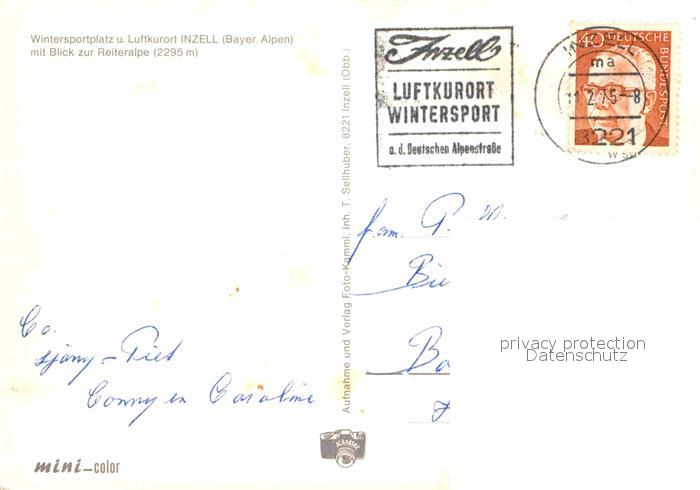 Wintersportplatz u. Luftkurort INZELL (Bayer. Alpen)
mit Blick zur Reiteralpe (2295 m)
Inzell
LUFTKURORT
WINTERSPORT
a. d. Deutschen Alpenstraße
INZELL
ma
11.2.75-8
8221
40 DEUTSCHE BUNDESPOST
Aufnahme und Verlag Foto-Kamml, Inh. T. Sellhuber, 8221 Inzell (Obb.)
fam. P.
Bie
Ba
privacy protection
Datenschutz
Co.
Piet
Conny en Caroline
KAMML
mini-color